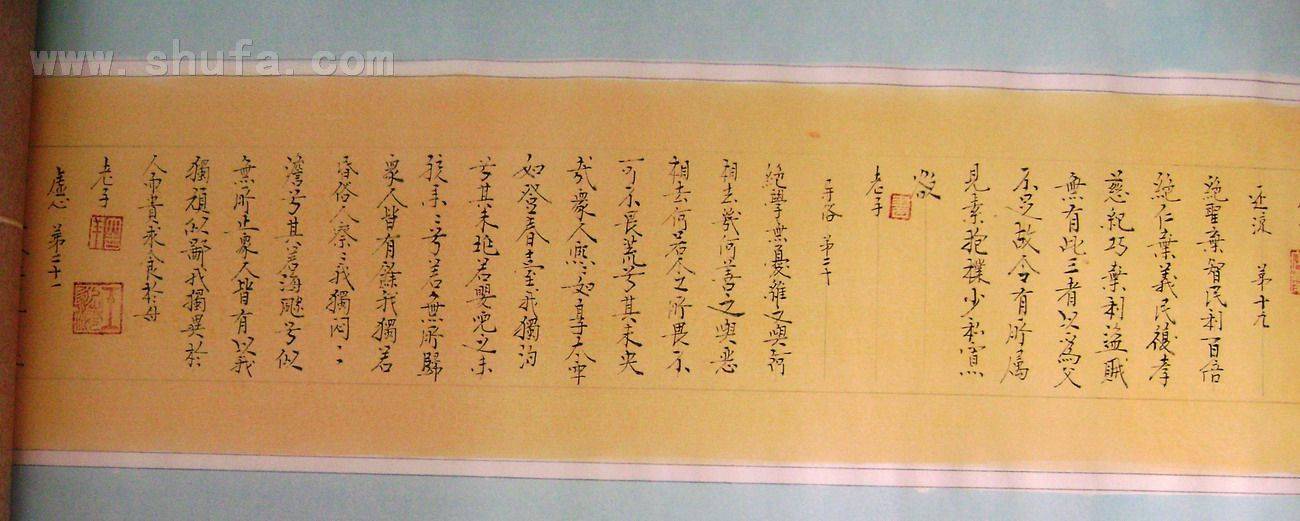 第十九
絕聖棄智民利百倍
絕仁棄義民復孝
慈絕巧棄利盜賊
無有此三者以為文
不足故令有所屬
見素抱樸少私寡
欲
老子
異俗 第二十
絕學無憂維之與阿
相去幾何善之與惡
相去何若人之所畏不
可不畏荒兮其未央
哉衆人熙〻如享太牢
如登春臺我獨泊
兮其未兆若嬰兒之未
孩乘〻兮若無所歸
衆人皆有餘我獨若
昏俗人察〻我獨悶〻
澹兮其若海飂兮似
無所止衆人皆有以我
獨頑似鄙我獨異於
人而貴求食於母
老子
虛心 第二十一
www.shufa.com